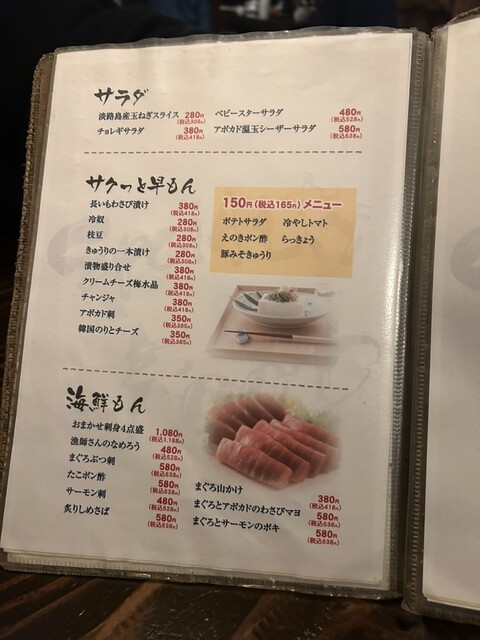 サラダ
淡路島産玉ねぎスライス 280円 (税込308円)
チョレギサラダ 380円 (税込418円)
ベビースターサラダ 480円 (税込528円)
アボカド温玉シーザーサラダ 580円 (税込638円)
サクっと早もん
長いもわさび漬け 380円 (税込418円)
冷奴 280円 (税込308円)
枝豆 280円 (税込308円)
きゅうりの一本漬け 280円 (税込308円)
漬物盛り合せ 380円 (税込418円)
クリームチーズ梅水晶 380円 (税込418円)
チャンジャ 380円 (税込418円)
アボカド刺 350円 (税込385円)
韓国のりとチーズ 350円 (税込385円)
150円(税込165円)メニュー
ポテトサラダ 冷やしトマト
えのきポン酢 らっきょう
豚みそきゅうり
海鮮もん
おまかせ刺身4点盛 1,080円 (税込1,188円)
漁師さんのなめろう 480円 (税込528円)
まぐろぶつ刺 580円 (税込638円)
たこポン酢 580円 (税込638円)
サーモン刺 480円 (税込528円)
炙りしめさば 580円 (税込638円)
まぐろ山かけ 380円 (税込418円)
まぐろとアボカドのわさびマヨ 580円 (税込638円)
まぐろとサーモンのポキ 580円 (税込638円)